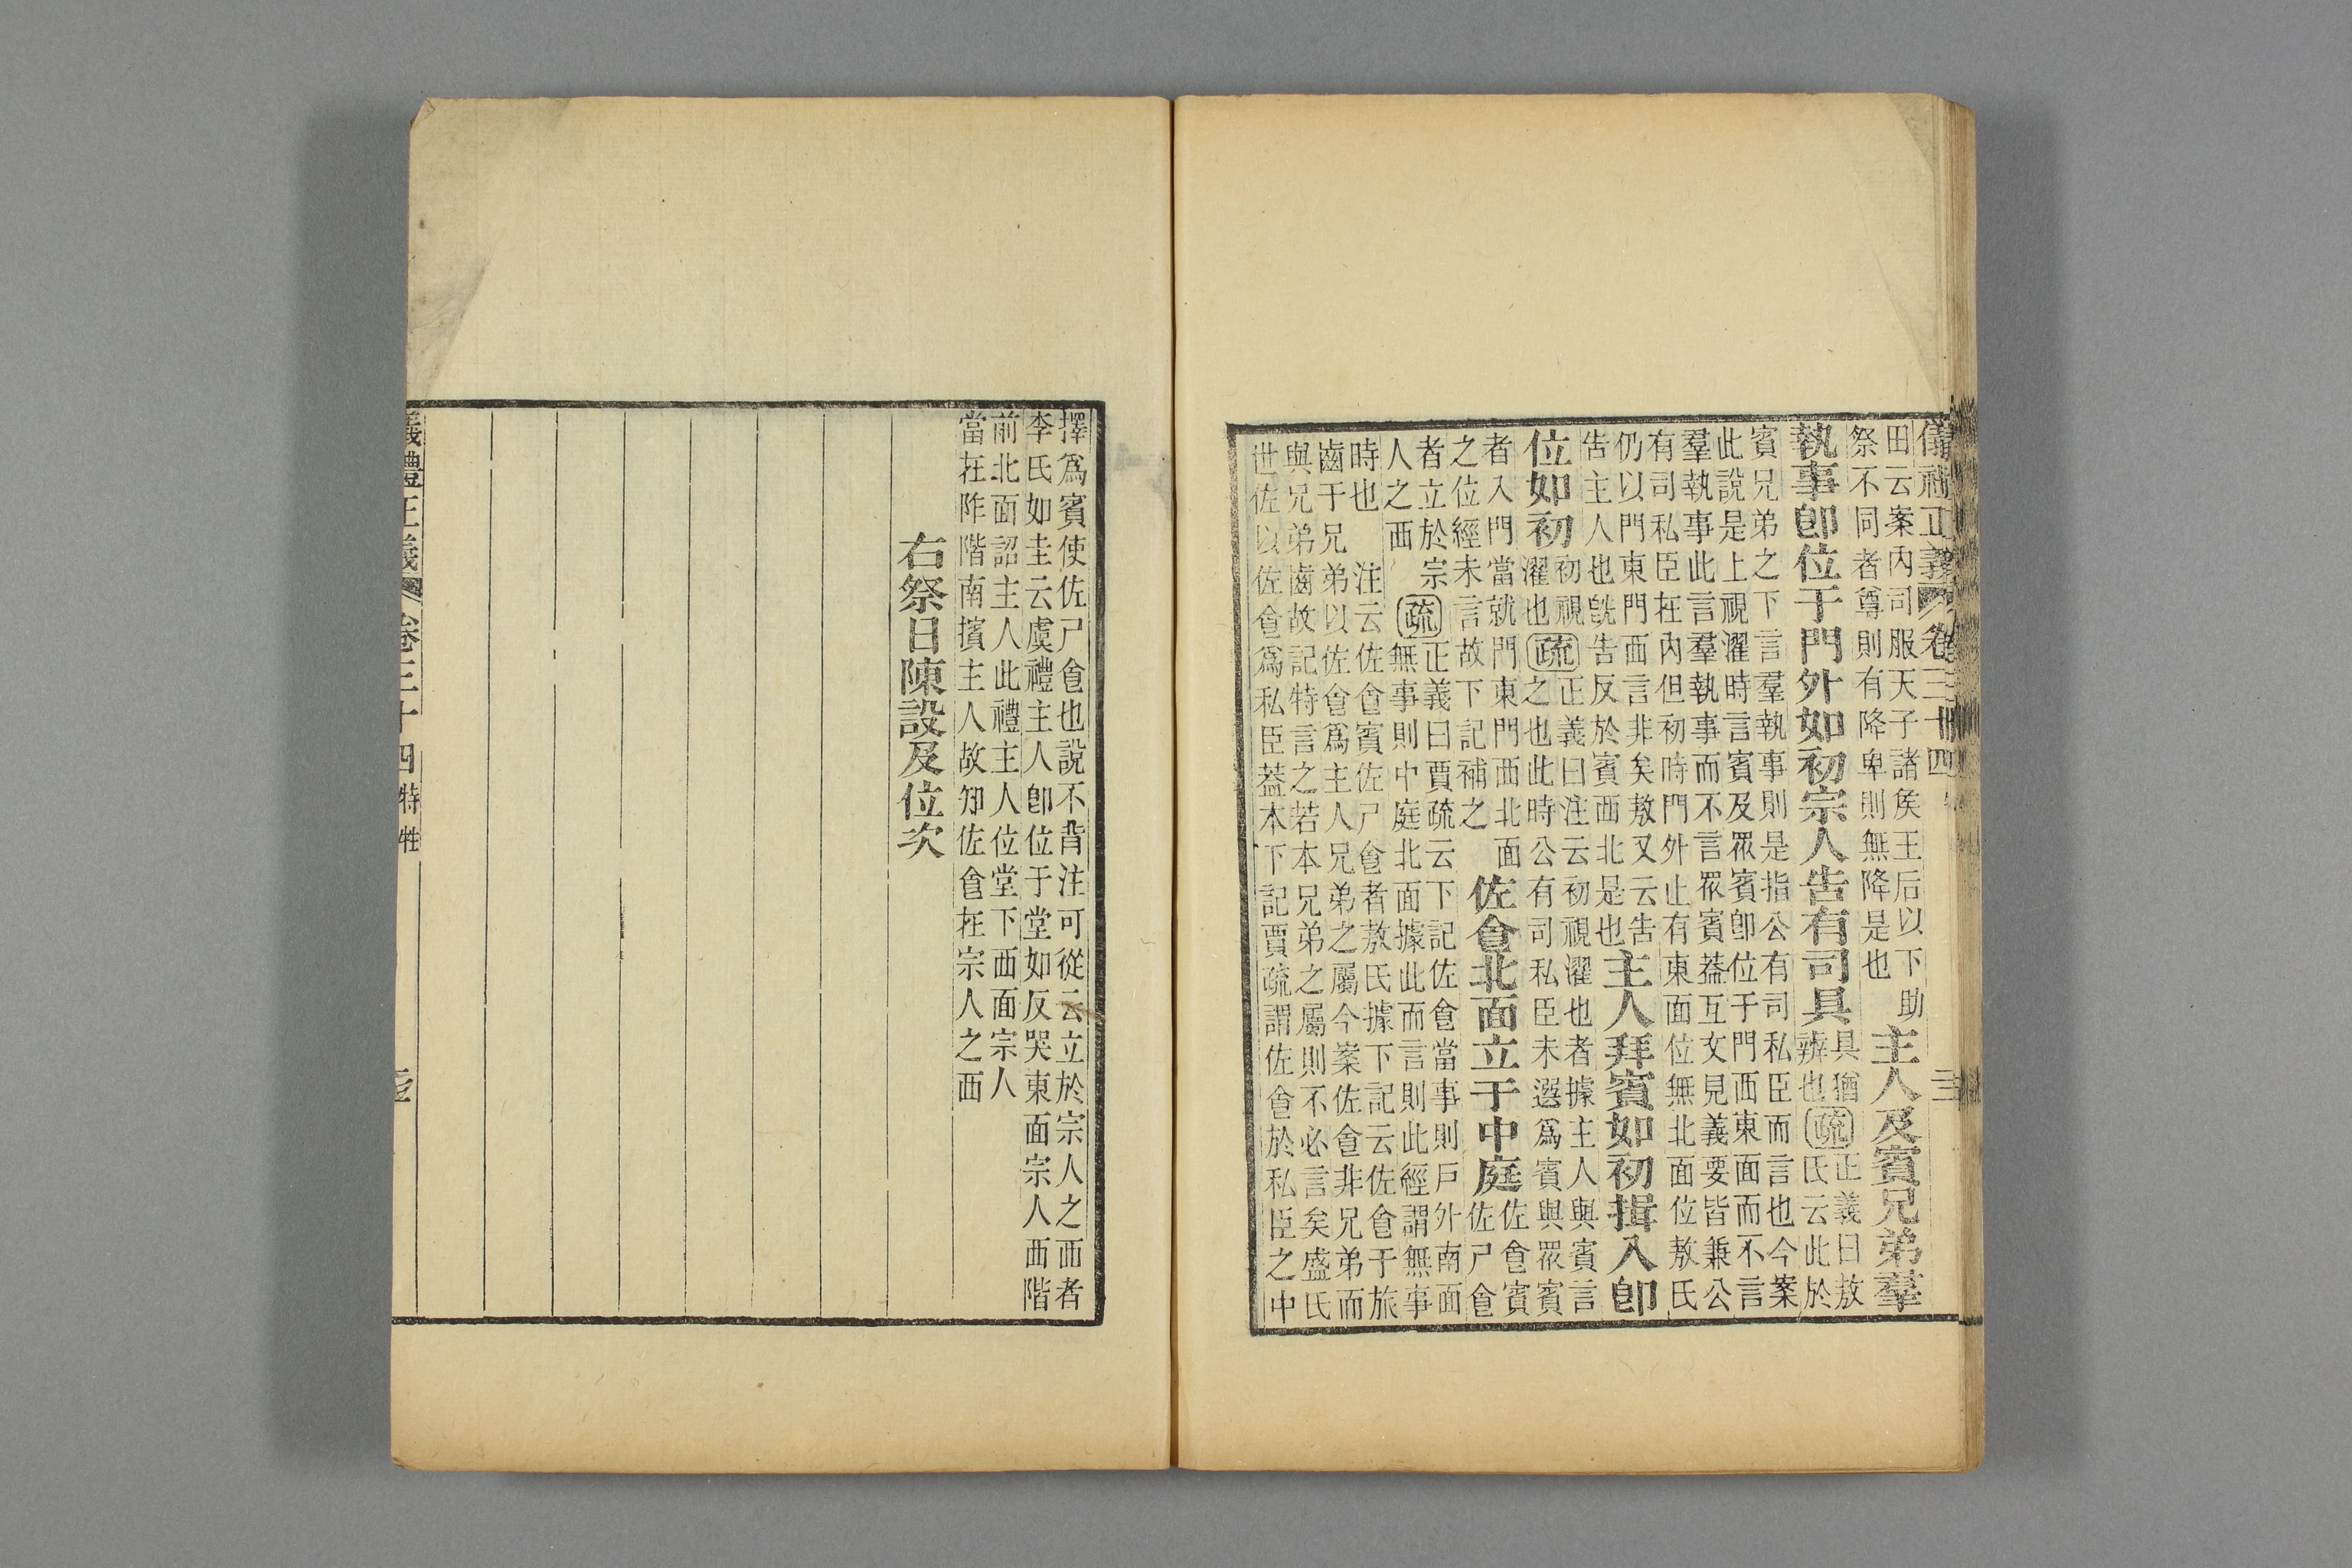 儀禮正義 卷三十四 三
田云案內司服天子諸矦王后以下助
祭不同者尊則有降卑則無降是也
主人及賓兄弟羣
執事卽位于門外如初宗人告有司具
具猶
辨也
疏
正義曰敖
氏云此於
賓兄弟之下言羣執事則是指公有司私臣而言也今案
此說是上視濯時言賓及眾賓卽位于門西東面而不言
羣執事此言羣執事而不言眾賓葢互文見義要皆兼公
有司私臣在內但初時門外止有東面位無北面位敖氏
仍以門東門西言非矣敖又云告
告主人也旣告反於賓西北是也
主人拜賓如初揖入卽
位如初
初視
濯也
疏
正義曰注云初視濯也者據主人與賓言
之也此時公有司私臣未選爲賓與眾賓
者入門當就門東門西北面
之位經未言故下記補之
佐食北面立于中庭
佐食賓
佐尸食
者立於宗
人之西
疏
正義曰賈疏云下記佐食當事則戶外南面
無事則中庭北面據此而言則此經謂無事
時也 注云佐食賓佐尸食者敖氏據下記云佐食于旅
齒于兄弟以佐食爲主人兄弟之屬今案佐食非兄弟而
與兄弟齒故記特言之若本兄弟之屬則不必言矣盛氏
世佐以佐食爲私臣葢本下記賈疏謂佐食於私臣之中
擇爲賓使佐尸食也說不背注可從云立於宗人之西者
李氏如圭云虞禮主人卽位于堂如反哭東面宗人西階
前北面詔主人此禮主人位堂下西面宗人
當在阼階南擯主人故知佐食在宗人之西
右祭日陳設及位次
義禮正義 卷三十四 特牲